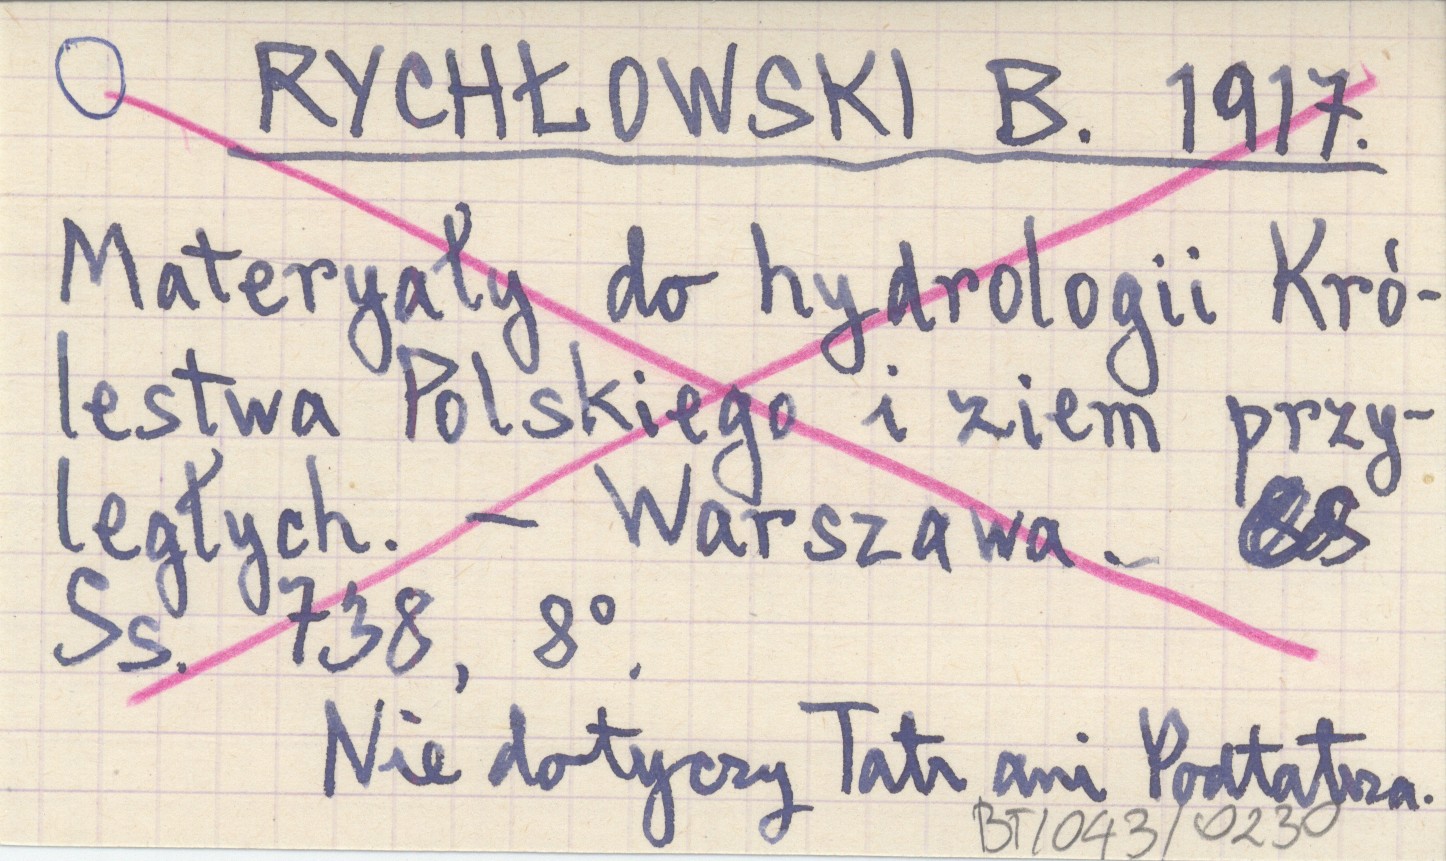 RYCHŁOWSKI B. 1917.
Materyały do hydrologii Kró-
lestwa Polskiego i ziem przy-
ległych. - Warszawa.
Ss. 738, 8°.
Nie dotyczy Tatr ani Podtatrza.
BT/043/0230